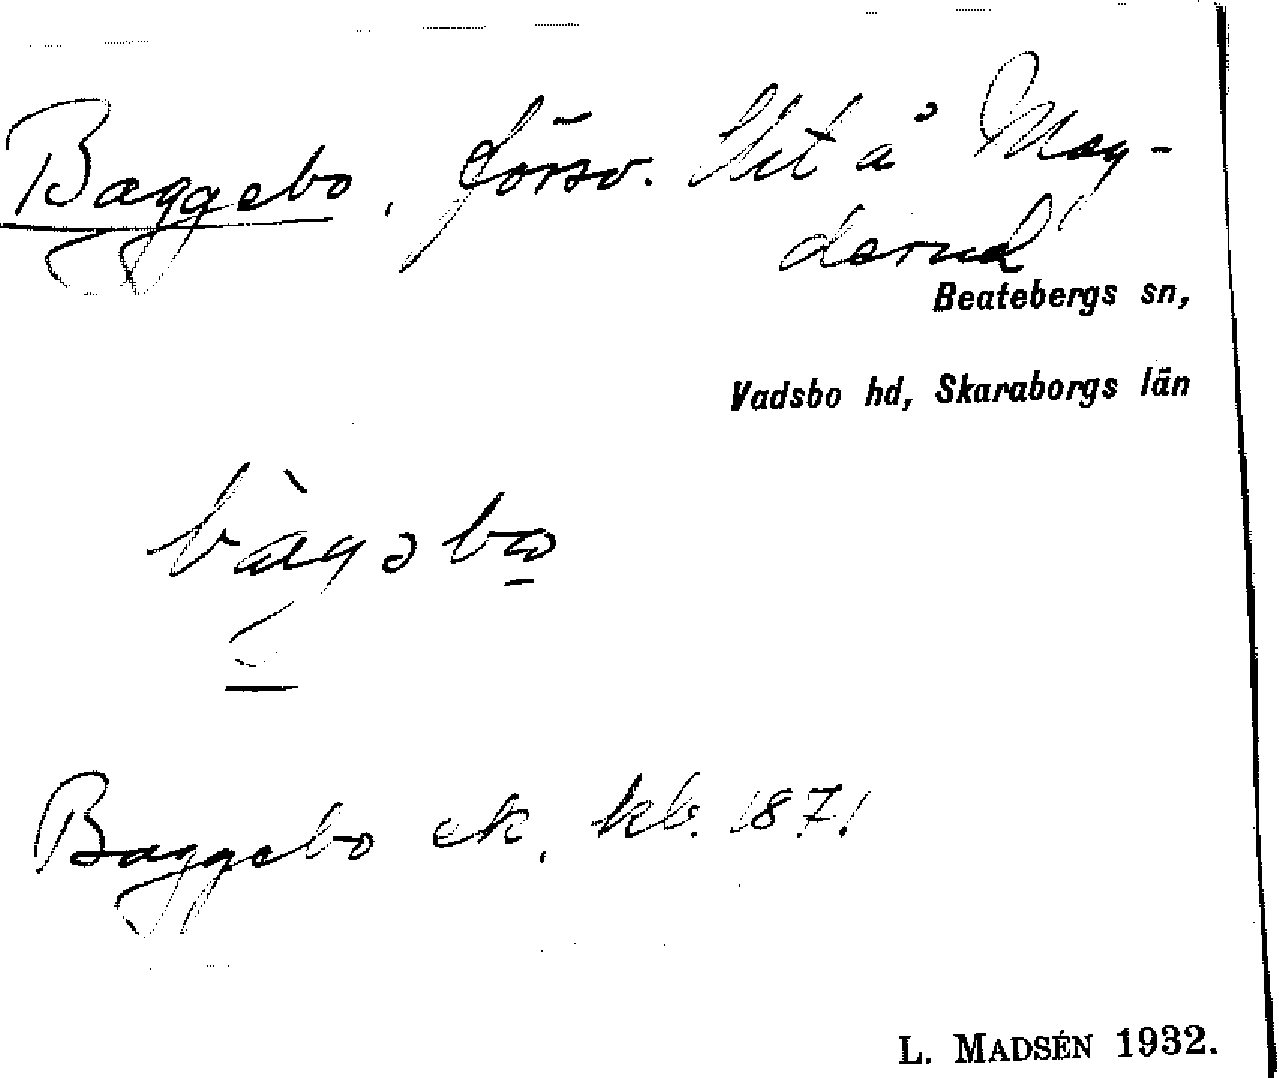 Baggebo, försv. Het å Mag-
derud
Beatebergs sn,
Vadsbo hd, Skaraborgs län
bàgəbo
Baggebo ck, kb. 1871
L. MADSÉN 1932.